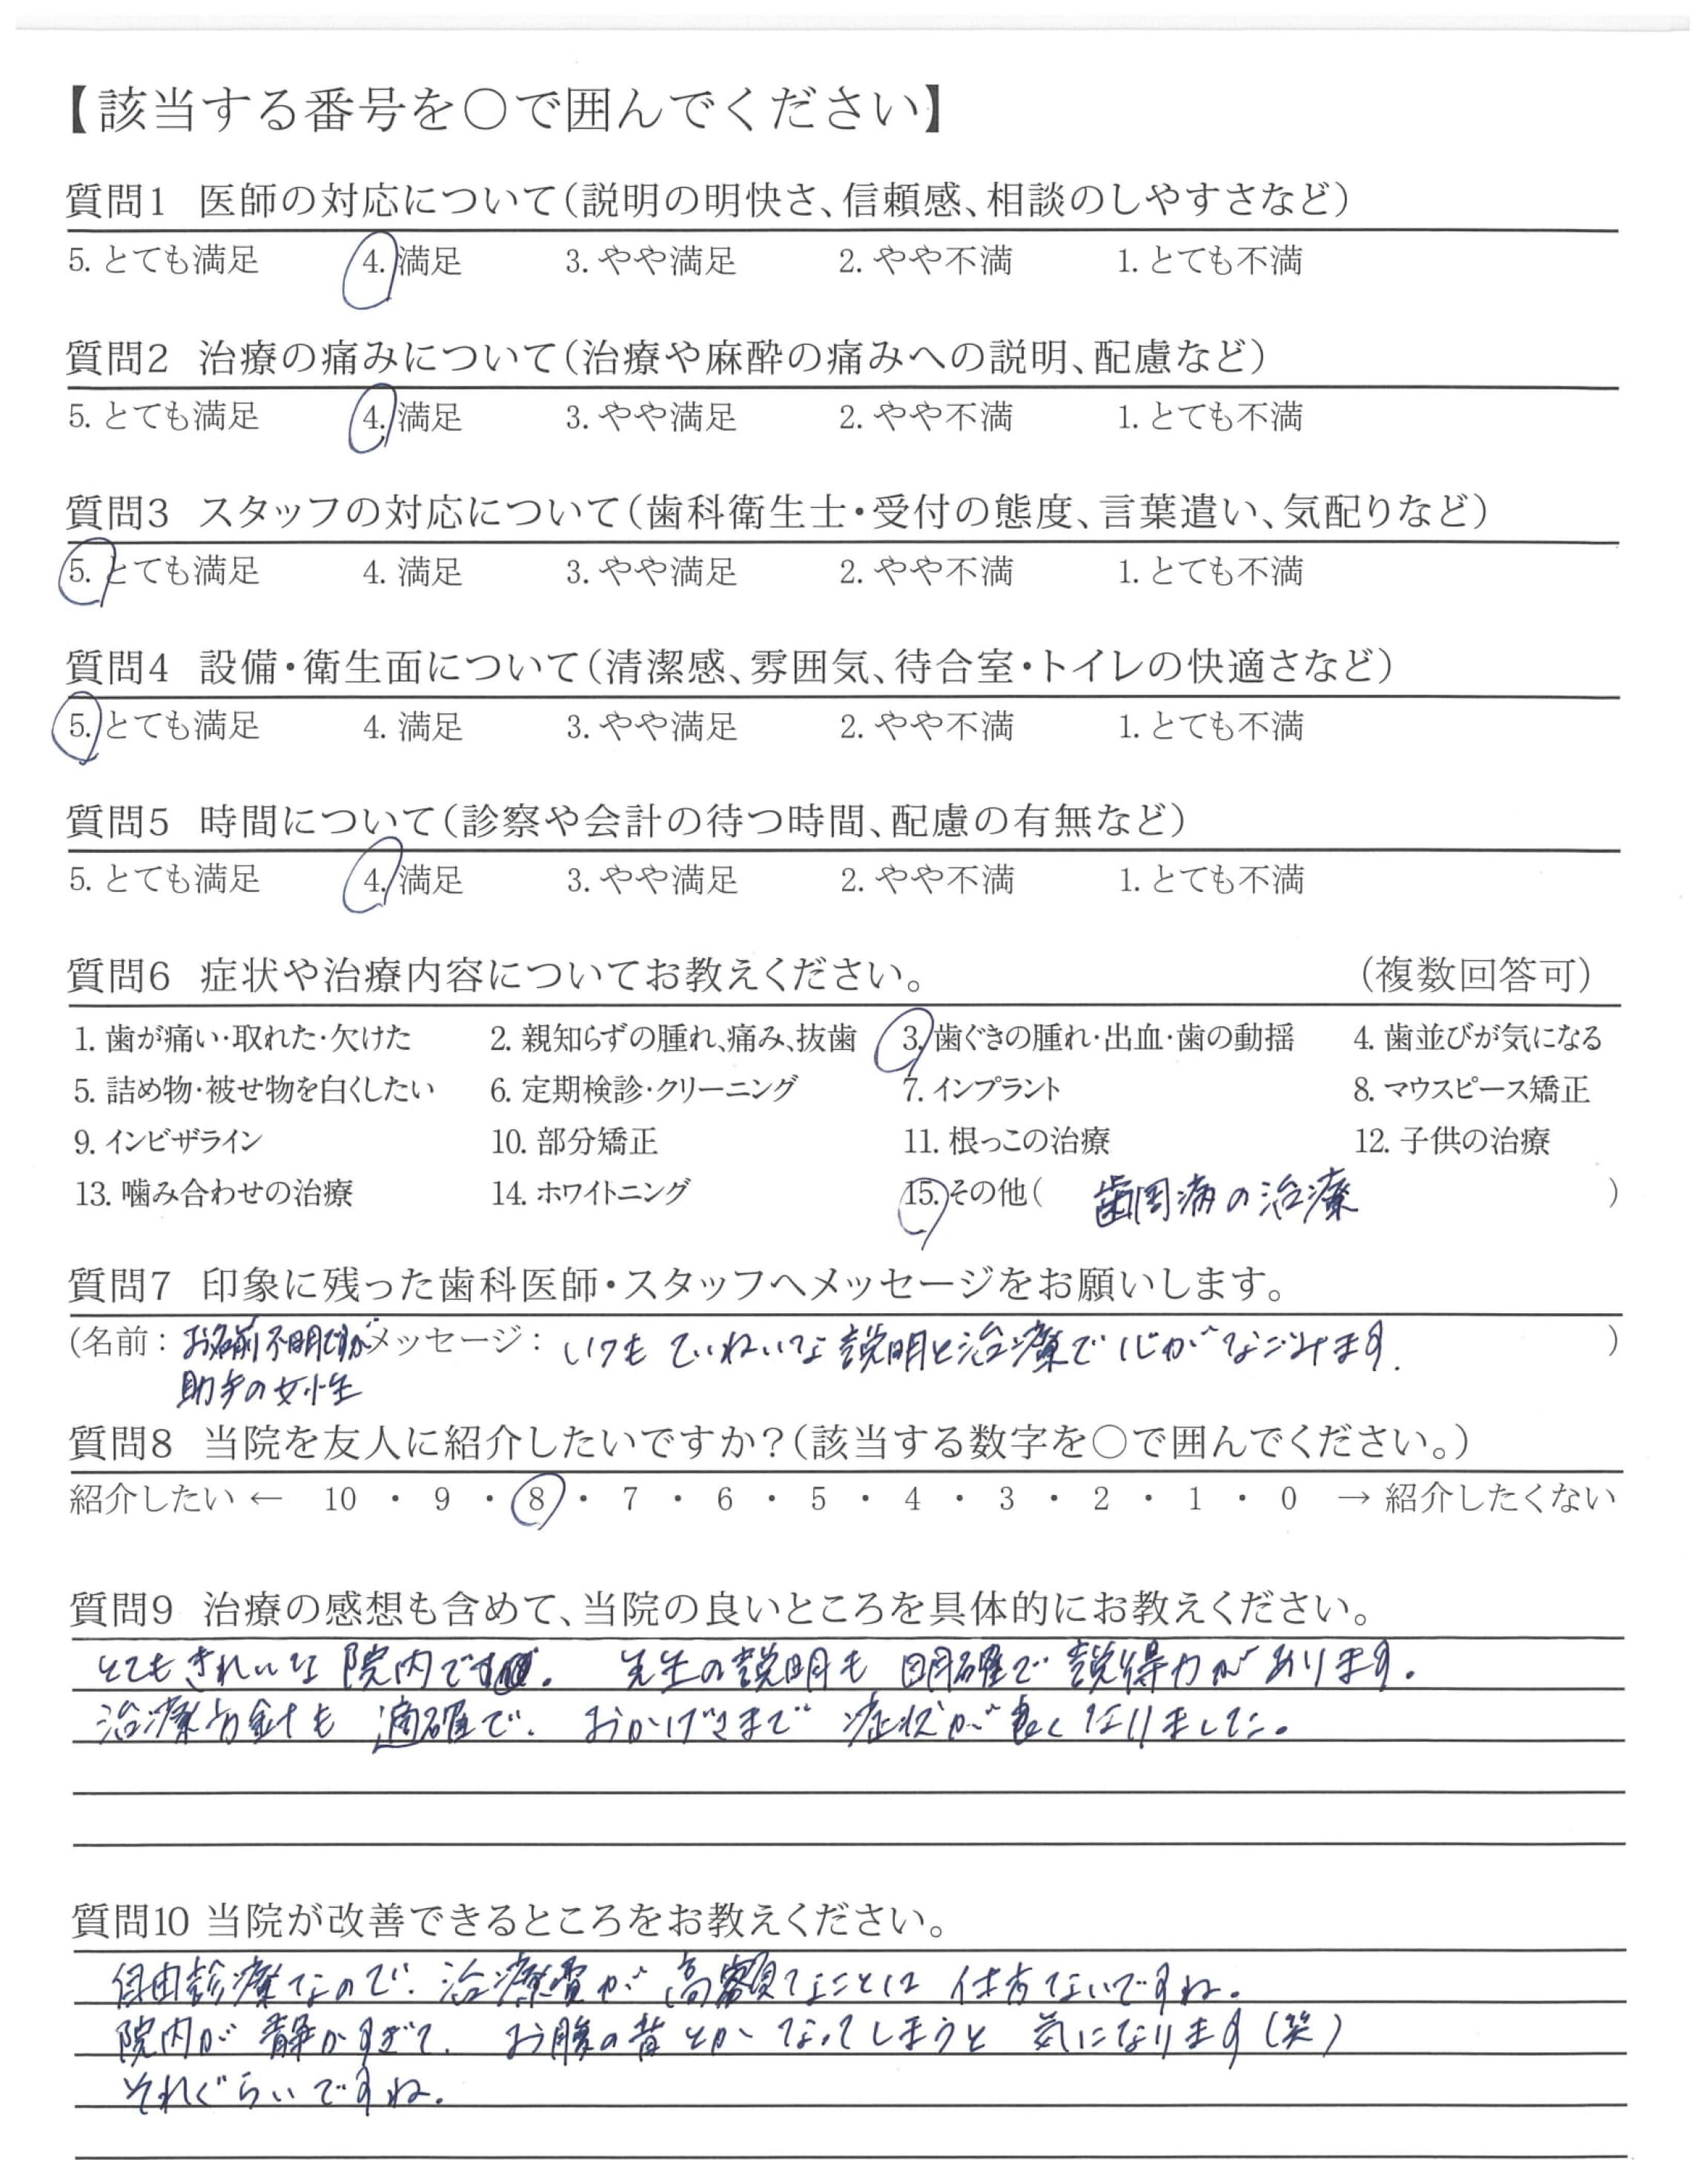 【該当する番号を○で囲んでください】
質問1 医師の対応について(説明の明快さ、信頼感、相談のしやすさなど)
5. とても満足 4. 満足 3. やや満足 2. やや不満 1. とても不満
質問2 治療の痛みについて(治療や麻酔の痛みへの説明、配慮など)
5. とても満足 4. 満足 3. やや満足 2. やや不満 1. とても不満
質問3 スタッフの対応について(歯科衛生士・受付の態度、言葉遣い、気配りなど)
5. とても満足 4. 満足 3. やや満足 2. やや不満 1. とても不満
質問4 設備・衛生面について(清潔感、雰囲気、待合室・トイレの快適さなど)
5. とても満足 4. 満足 3. やや満足 2. やや不満 1. とても不満
質問5 時間について(診察や会計の待つ時間、配慮の有無など)
5. とても満足 4. 満足 3. やや満足 2. やや不満 1. とても不満
質問6 症状や治療内容についてお教えください。 (複数回答可)
1. 歯が痛い・取れた・欠けた 2. 親知らずの腫れ、痛み、抜歯 3. 歯ぐきの腫れ・出血・歯の動揺 4. 歯並びが気になる
5. 詰め物・被せ物を白くしたい 6. 定期検診・クリーニング 7. インプラント 8. マウスピース矯正
9. インビザライン 10. 部分矯正 11. 根っこの治療 12. 子供の治療
13. 噛み合わせの治療 14. ホワイトニング 15. その他( 歯周病の治療 )
質問7 印象に残った歯科医師・スタッフへメッセージをお願いします。
(名前: お名前不明ですが メッセージ: いつもていねいな説明と治療で心がなごみます. )
助手の女性
質問8 当院を友人に紹介したいですか?(該当する数字を○で囲んでください。)
紹介したい ← 10 ・ 9 ・ 8 ・ 7 ・ 6 ・ 5 ・ 4 ・ 3 ・ 2 ・ 1 ・ 0 → 紹介したくない
質問9 治療の感想も含めて、当院の良いところを具体的にお教えください。
とてもきれいな院内です。 先生の説明も明確で説得力があります。
治療方針も適確で、おかげさまで症状が良くなりました。
質問10 当院が改善できるところをお教えください。
自由診療なので、治療費が高額なことは仕方ないですね。
院内が静かすぎて、お腹の音とかなってしまうと気になります(笑)
それぐらいですね。